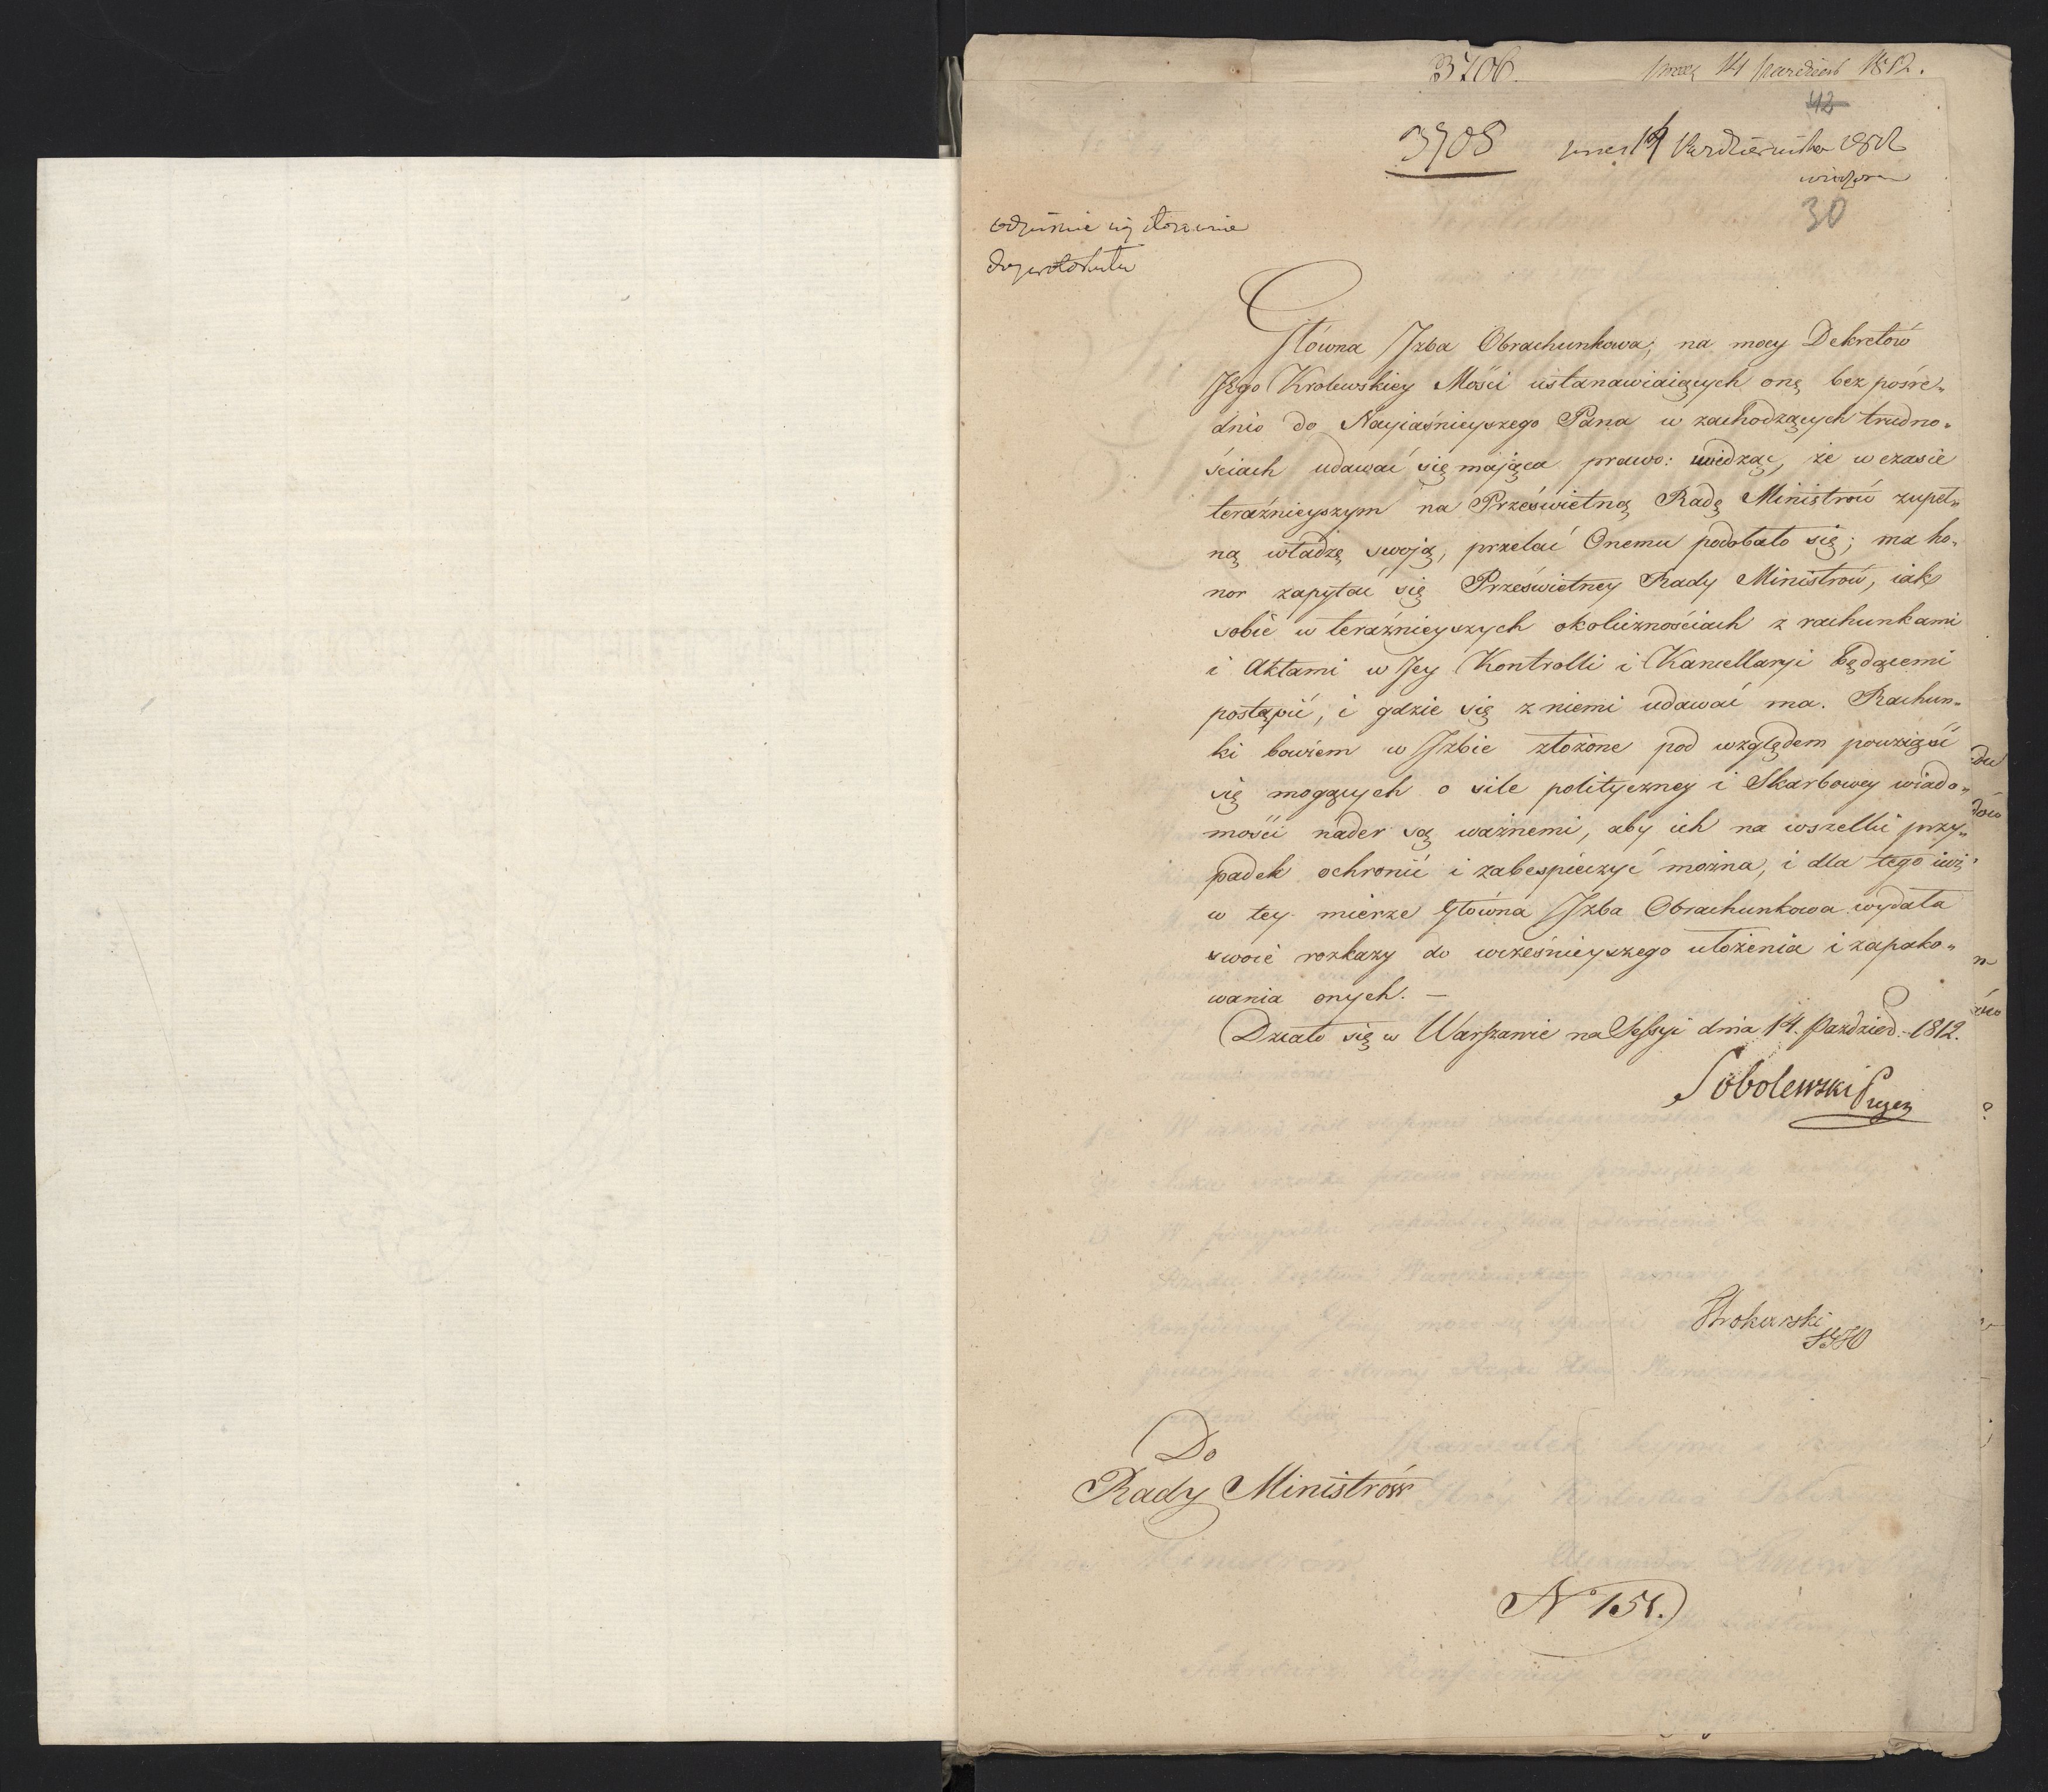 3706. 14 1812.
42
3708 14 Października 1812
wieczorem
30
odpisanie
do protokułu
Główna Jzba Obrachunkowa; na mocy Dekretów
JEgo Krolewskiey Mości ustanawiaiących onę, bez pośre„
dnio do Nayiaśnieyszego Pana w zachodzących trudno„
ściach udawać się mająca prawo: widząc, że w czasie
teraźnieyszym na Prześwietną Radę Ministrów zupeł„
ną władzę swoją, przelać Onemu podobało się; ma ho„
nor zapytać się Prześwietney Rady Ministrów, iak
sobie w teraźnieyszych okolicznościach z rachunkami
i Aktami w Jey Kontrolli i Kancellaryi będącemi
postąpić, i gdzie się z niemi udawać ma. Rachun„
ki bowiem w Jzbie złożone pod względem powziąść
się mogących o sile polityczney i Skarbowey wiado„
mości nader są ważnemi, aby ich na wszelki przy„
padek ochronić i zabespieczyć można, i dla tego iuż
w tey mierze Główna Jzba Obrachunkowa wydała
swoie rozkazy do wcześnieyszego ułożenia i zapako„
wania onych. —
Działo się w Warszawie na Sessyi dnia 14. Paździer. 1812.
Sobolewski Prezes
Do
Rady Ministrów